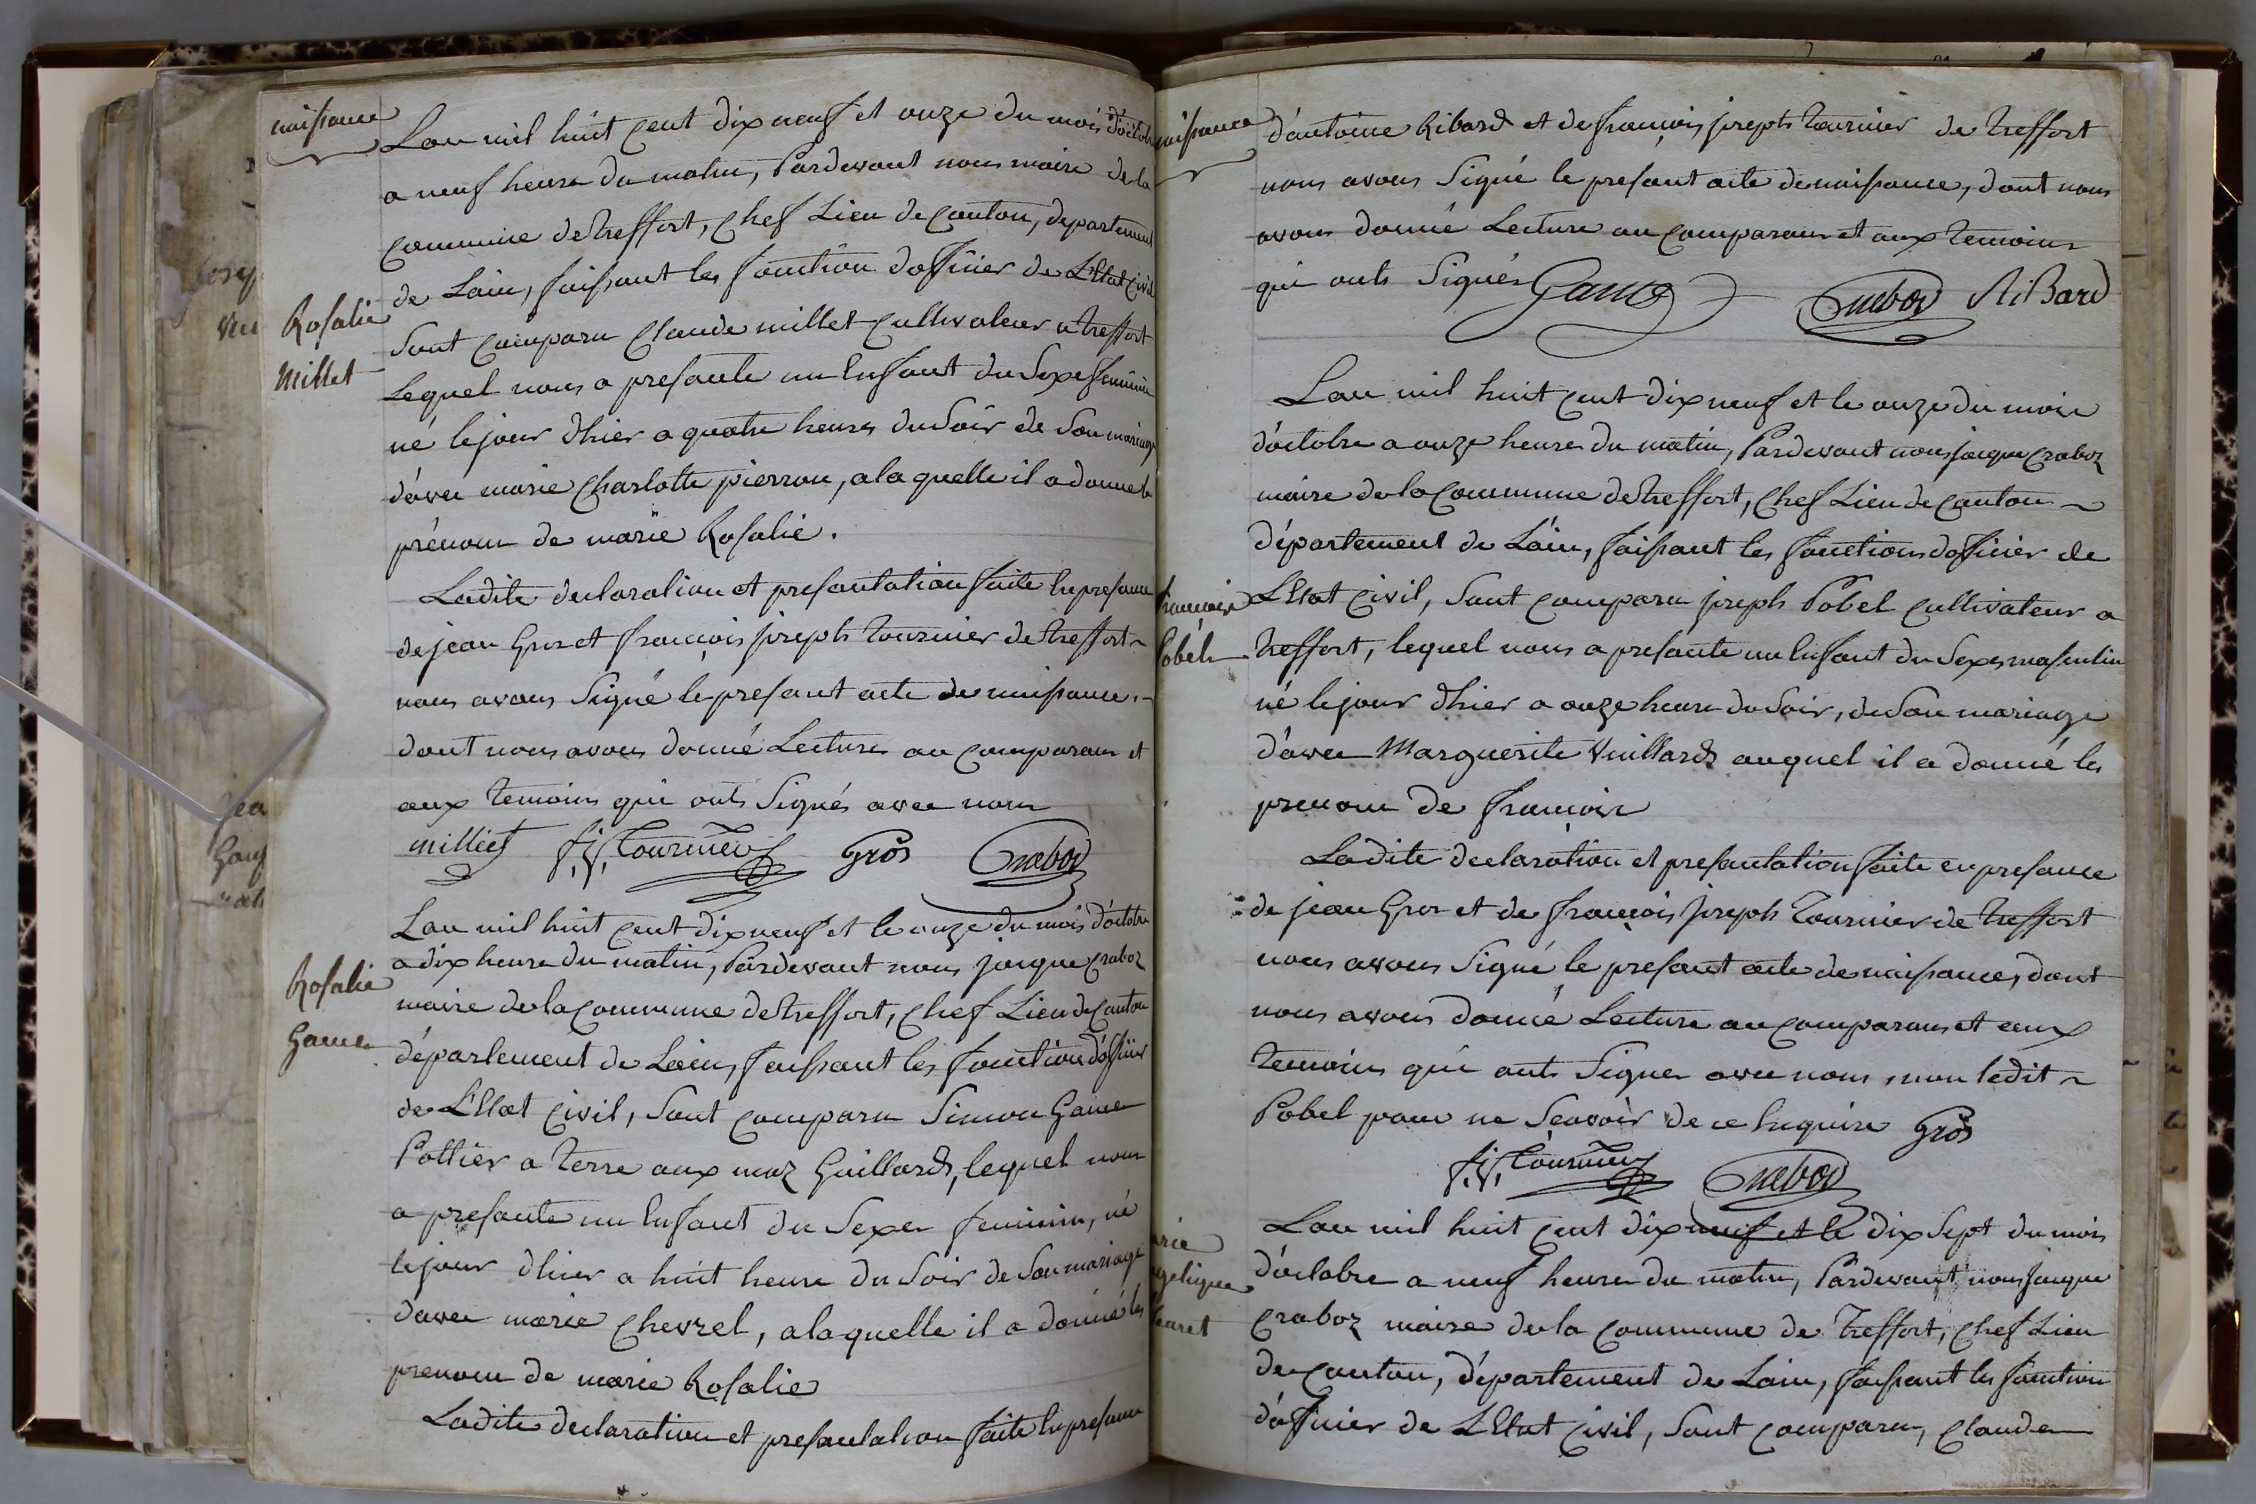 naissance
Lan mil huit cent dix neuf et onze du mois d'octobre
a neuf heure du matin, Pardevant nous maire de la
commune de treffort, Chef Lieu de canton, departement
de Lain, faissant les fonction dofficier de L'Etat civil
Rosalie
Millet
Sont comparu Claude millet cultivateur a treffort
Lequel nous a presante un Enfant du Sexe feminin
né le jour d'hier a quatre heures du Soir de Son mariage
d'avec marie Charlotte pierron, a la quelle il a donné le
prénom de marie Rosalie.
Ladite declaration et presantation faite En presance
de jean Gros et françois joseph tournier de treffort
nous avons Signé le presant acte de naissance,
dont nous avons donné Lecture au comparans et
aux temoins qui onts Signés avec nous
milliet f. j. Tournier Gros Craboz
Lan mil huit cent dix neuf et le onze du mois d'octobre
a dix heure du matin, Pardevant nous jacque craboz
Rosalie
Game
maire de la commune de treffort, Chef Lieu de Canton
département de Lain, faissant les fonction d'officier
de L'Etat civil, Sont comparu Simon Game
Pottier a terre aux maz Guillard, lequel nous
a presante un Enfant du Sexe feminin, né
le jour d'hier a huit heure du Soir de Son mariage
d'avec marie Chevrel, a la quelle il a donné les
prenom de marie Rosalie
Ladite declaration et presantation faite En presance
naissance
d'antoine Ribard et de françois joseph tournier de treffort
nous avons Signé le presant acte de naissance, dont nous
avons donné Lecture au comparans et aux temoins
qui onts Signés Game Craboz RiBard
Lan mil huit cent dix neuf et le onze du mois
d'octobre a onze heures du matin, Pardevant nous jacque craboz
maire de la Commune de treffort, Chef Lieu de canton
département de Lain, faissant les fonctions dofficier de
françois
Pobel
L'Etat civil, Sont comparu joseph Pobel cultivateur a
treffort, lequel nous a presante un Enfant du Sexe masculin
né le jour d'hier a onze heure du Soir, de Son mariage
d'avec Marguerite Vuillard auquel il a donné les
prenom de françois
Ladite declaration et presantation faite en presance
de jean Gros et de françois joseph tournier de treffort
nous avons Signé le presant acte de naissance, dont
nous avons donné Lecture au comparans et aux
temoins qui onts Signer avec nous, non ledit
Pobel pour ne Scavoir de ce Enquire Gros
f. j. Tournier Craboz
Lan mil huit cent dix neuf et le dix Sept du mois
gelique
d'octobre a neuf heures du matin, Pardevant nous Jacque
craboz maire de la commune de Treffort, Chef Lieu
de canton, département de Lain, faissant les fonction
d'officier de L'Etat civil, Sont comparu, Claude